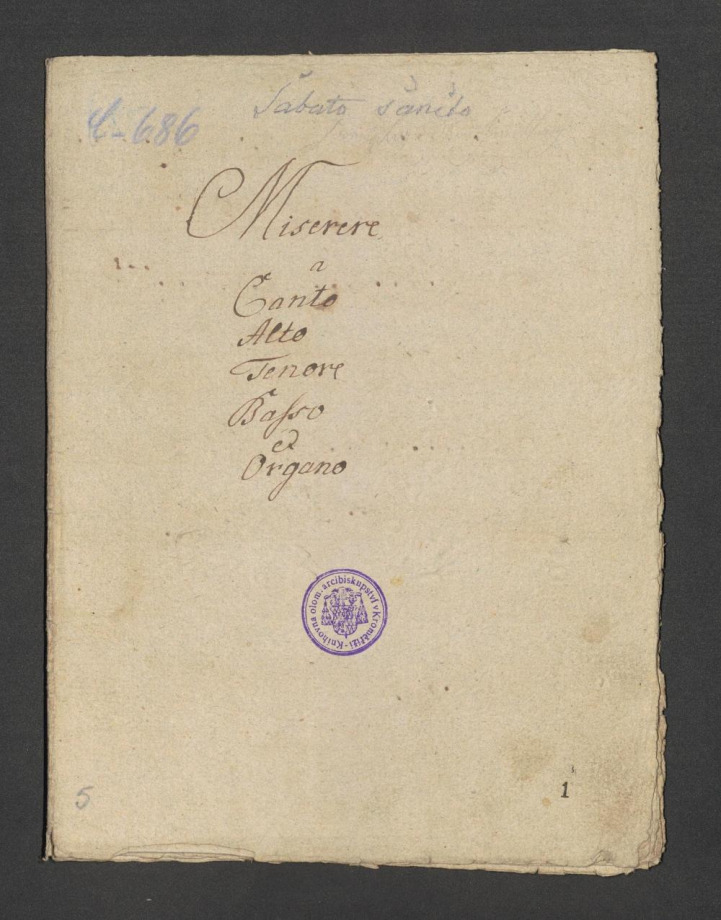 Sabato sancto
C-686
Miserere
a
Canto
Alto
Tenore
Basso
ed
Organo
Knihovna olom. arcibiskupství v Kroměříži -
5
1